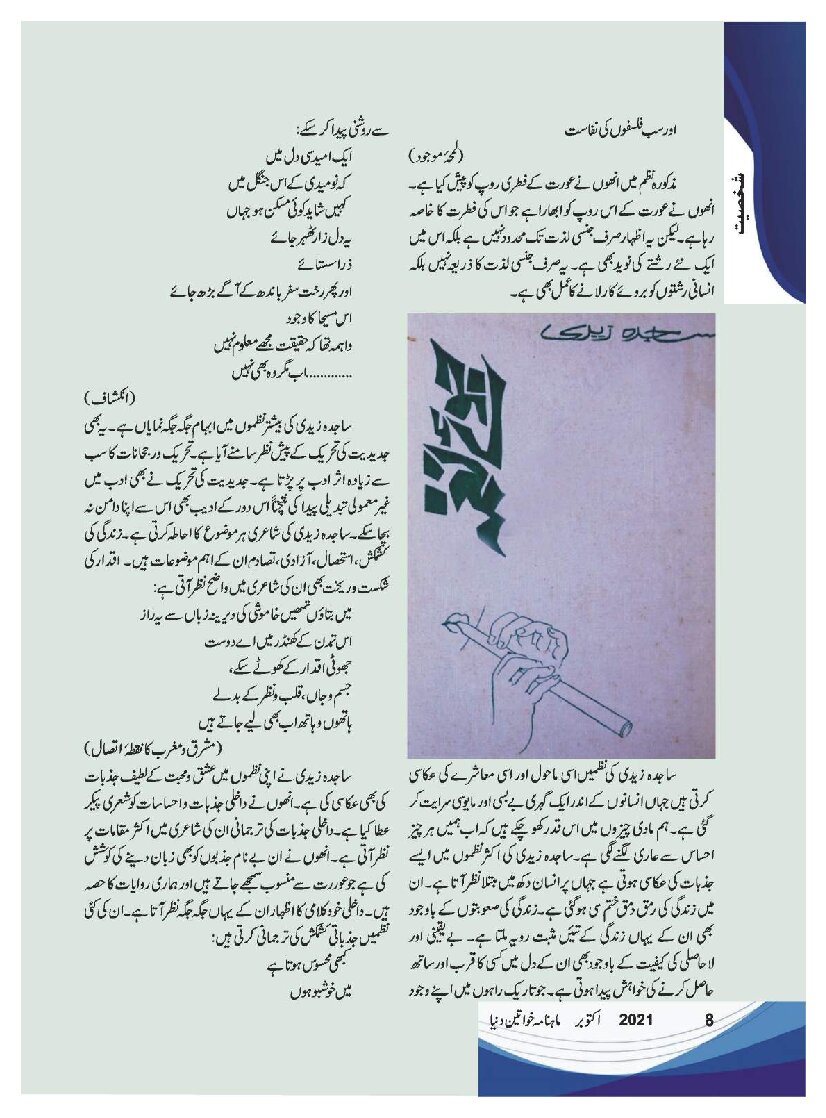 شخصیت
اور سب فلسفوں کی نفاست
(لمحۂ موجود)
مذکورہ نظم میں انھوں نے عورت کے فطری روپ کو پیش کیا ہے۔
انھوں نے عورت کے اس روپ کو ابھارا ہے جو اس کی فطرت کا خاصہ
رہا ہے۔ لیکن یہ اظہار صرف جنسی لذت تک محدود نہیں ہے بلکہ اس میں
ایک نئے رشتے کی نوید بھی ہے۔ یہ صرف جنسی لذت کا ذریعہ نہیں بلکہ
انسانی رشتوں کو بروئے کار لانے کا عمل بھی ہے۔
ساجدہ زیدی
ساجدہ زیدی کی نظمیں اسی ماحول اور اسی معاشرے کی عکاسی
کرتی ہیں جہاں انسانوں کے اندر ایک گہری بے بسی اور مایوسی سرایت کر
گئی ہے۔ ہم مادی چیزوں میں اس قدر کھو چکے ہیں کہ اب ہمیں ہر چیز
احساس سے عاری لگنے لگی ہے۔ ساجدہ زیدی کی اکثر نظموں میں ایسے
جذبات کی عکاسی ہوتی ہے جہاں پر انسان دکھ میں مبتلا نظر آتا ہے۔ ان
میں زندگی کی رمق دمق ختم سی ہوگئی ہے۔ زندگی کی صعوبتوں کے باوجود
بھی ان کے یہاں زندگی کے تئیں مثبت رویہ ملتا ہے۔ بے یقینی اور
لاحاصلی کی کیفیت کے باوجود بھی ان کے دل میں کسی کا قرب اور ساتھ
حاصل کرنے کی خواہش پیدا ہوتی ہے۔ جو تاریک راہوں میں اپنے وجود
سے روشنی پیدا کرسکے:
ایک امید سی دل میں
کہ نومیدی کے اس جنگل میں
کہیں شاید کوئی مسکن ہو جہاں
یہ دل زار ٹھہر جائے
ذرا ستائے
اور پھر رخت سفر باندھ کے آگے بڑھ جائے
اس مسیحا کا وجود
واہمہ تھا کہ حقیقت مجھے معلوم نہیں
............اب مگر وہ بھی نہیں
(انکشاف)
ساجدہ زیدی کی بیشتر نظموں میں ابہام جگہ جگہ نمایاں ہے۔ یہ بھی
جدیدیت کی تحریک کے پیش نظر سامنے آیا ہے۔ تحریک و رجحانات کا سب
سے زیادہ اثر ادب پر پڑتا ہے۔ جدیدیت کی تحریک نے بھی ادب میں
غیر معمولی تبدیلی پیدا کی نتیجتاً اس دور کے ادیب بھی اس سے اپنا دامن نہ
بچاسکے۔ ساجدہ زیدی کی شاعری ہر موضوع کا احاطہ کرتی ہے۔ زندگی کی
کشمکش، استحصال، آزادی، تصادم ان کے اہم موضوعات ہیں۔ اقدار کی
شکست و ریخت بھی ان کی شاعری میں واضح نظر آتی ہے:
میں بتاؤں تمھیں خاموشی کی دیرینہ زباں سے یہ راز
اس تمدن کے کھنڈر میں اے دوست
جھوٹی اقدار کے کھوٹے سکے،
جسم و جاں، قلب و نظر کے بدلے
ہاتھوں و ہاتھ اب بھی لیے جاتے ہیں
(مشرق و مغرب کا نقطۂ اتصال)
ساجدہ زیدی نے اپنی نظموں میں عشق و محبت کے لطیف جذبات
کی بھی عکاسی کی ہے۔ انھوں نے داخلی جذبات و احساسات کو شعری پیکر
عطا کیا ہے۔ داخلی جذبات کی ترجمانی ان کی شاعری میں اکثر مقامات پر
نظر آتی ہے۔ انھوں نے ان بے نام جذبوں کو بھی زبان دینے کی کوشش
کی ہے جو عوررت سے منسوب سمجھے جاتے ہیں اور ہماری روایات کا حصہ
ہیں۔ داخلی خود کلامی کا اظہار ان کے یہاں جگہ جگہ نظر آتا ہے۔ ان کی کئی
نظمیں جذباتی کشمکش کی ترجمانی کرتی ہیں:
کبھی محسوس ہوتا ہے
میں خوشبو ہوں
8 2021 اکتوبر ماہنامہ خواتین دنیا